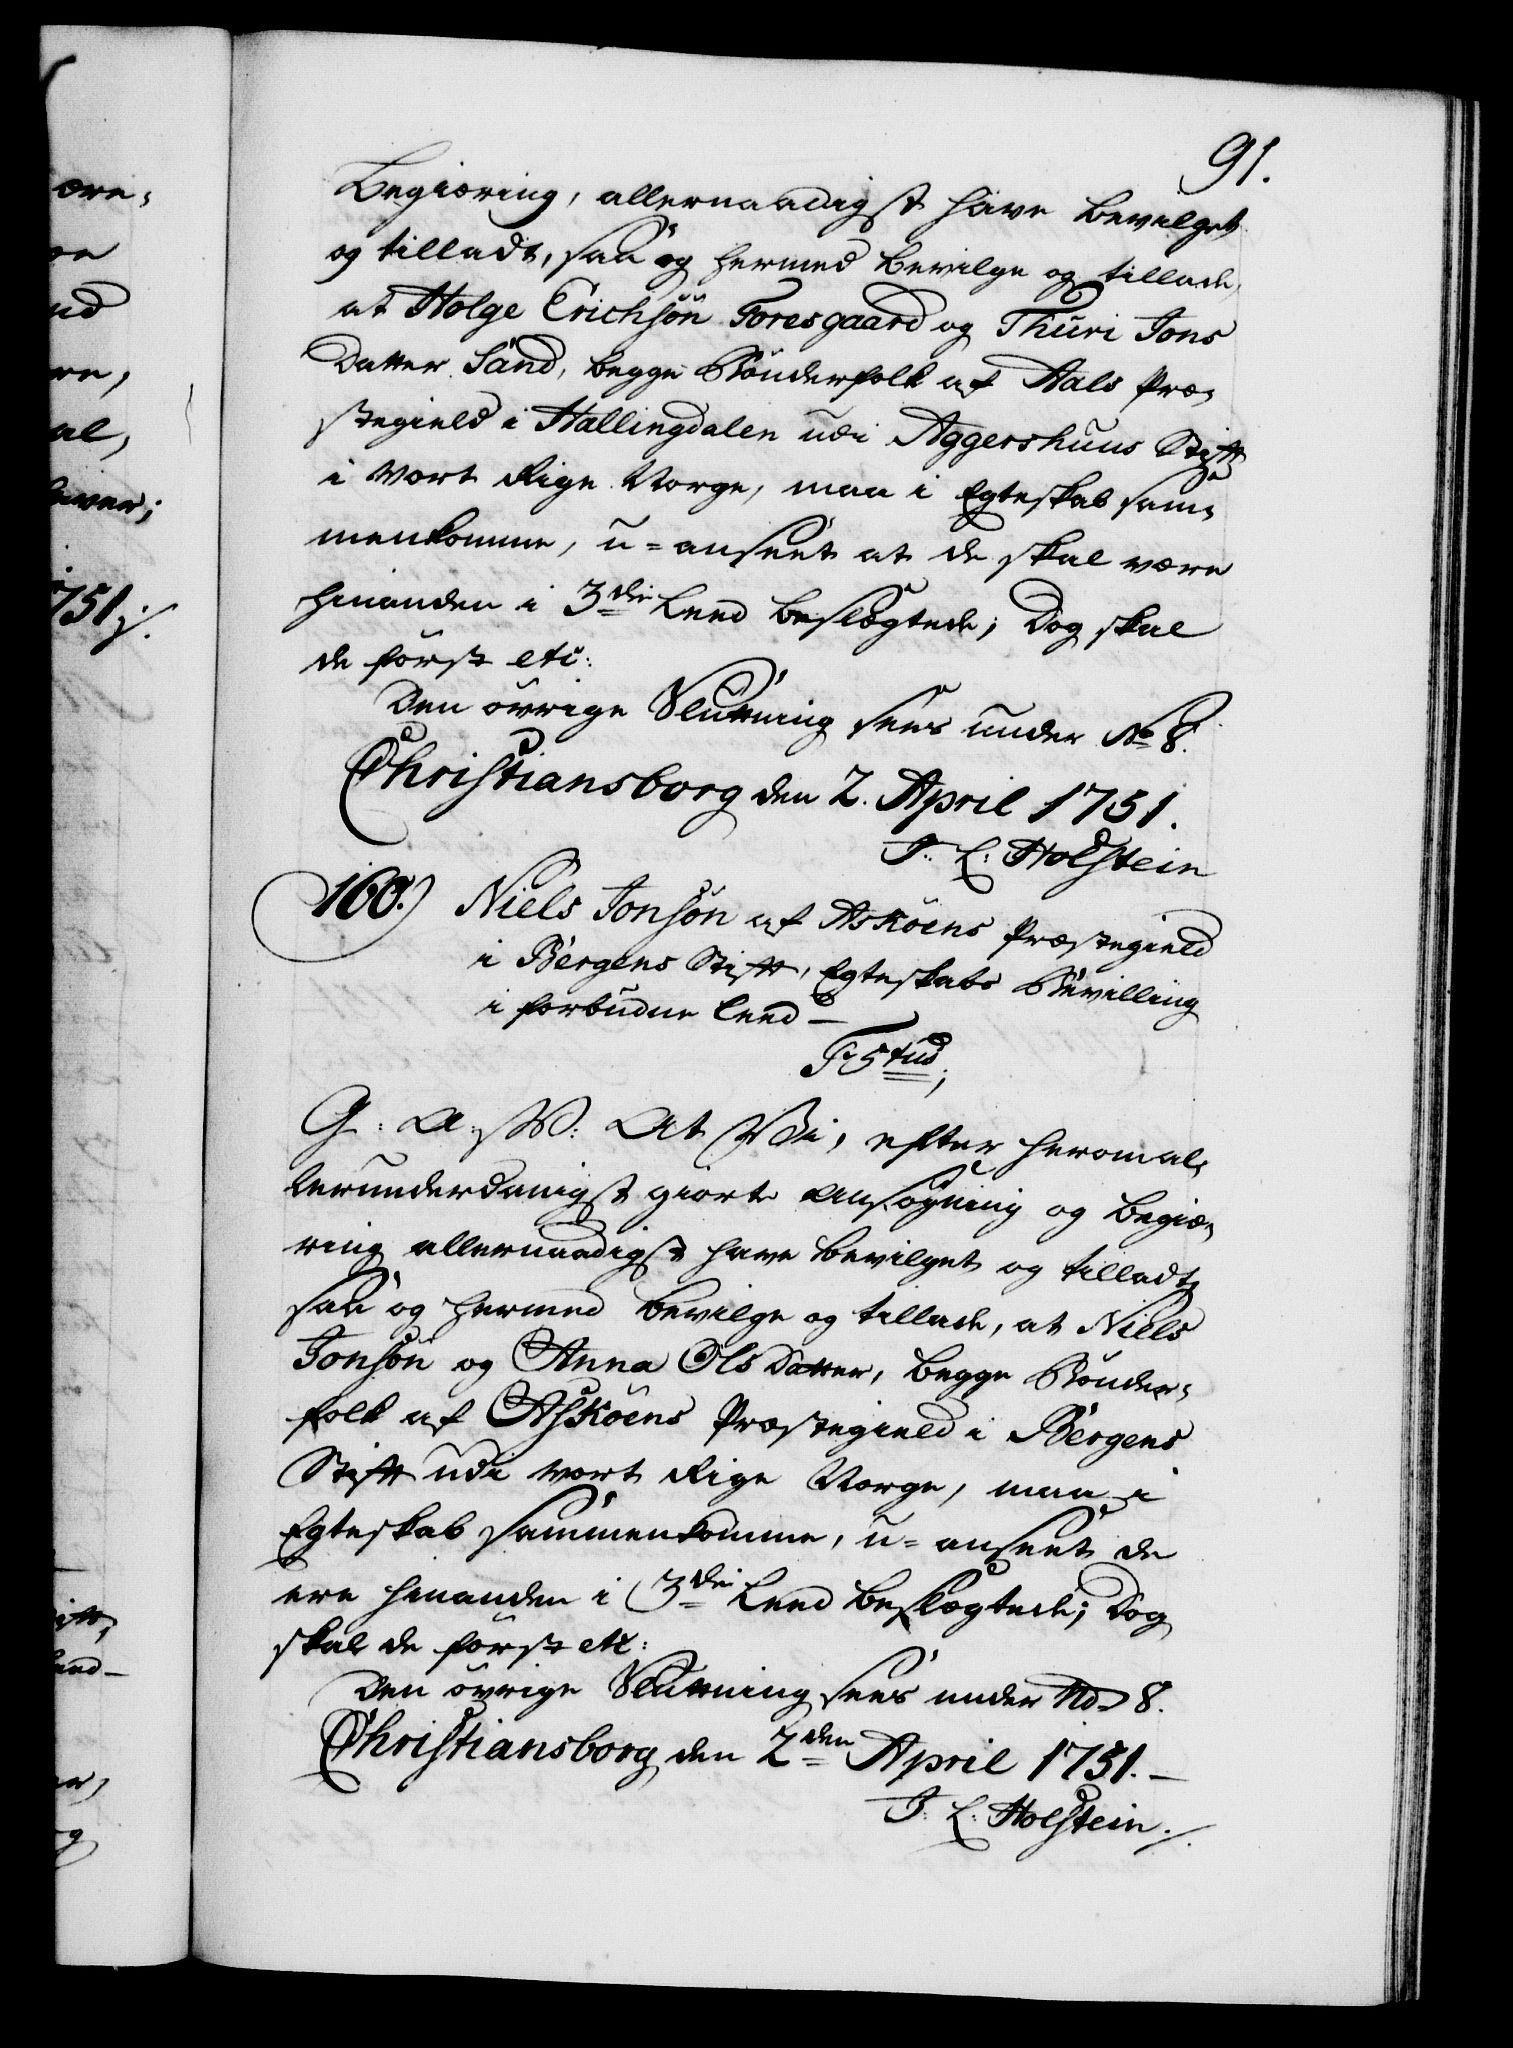 91.
Begiæring, allernaadigst have bevilget
og tilladt, saa og hermed bevilge og tillade,
at Holge Erichsön Foresgaard og Thuri Jons
Datter Sand, begge Bönderfolk af Aals Præ-
stegield i Hallingdalen udi Aggershuus Stift
i vort Rige Norge, maa i Egteskab sam-
menkomme, u-anseet at de skal være
hinanden i 3die Leed beslægtede; Dog skal
de först etc:
Den övrige Slutning sees under No 8.
Christiansborg den 2. April 1751.
J. L: Holstein
160.) Niels Jonsön af Asköens Præstegield
i Bergens Stift, Egteskabs Bevilling
i forbudne Leed –
F 5tus;
G: A: W: At Vi, efter herom al-
lerunderdanigst giort Ansögning og Begiæ-
ring allernaadigst have bevilget og tilladt,
saa og hermed bevilge og tillade, at Niels
Jonsön og Anna OlsDatter, begge Bönder-
folk af Asköens Præstegield i Bergens
Stift udi vort Rige Norge, maa i
Egteskab sammenkomme, u-anseet de
ere hinanden i 3die Leed beslægtede; Dog
skal de först etc:
Den övrige Slutning sees under No 8.
Christiansborg den 2den April 1751. –
J: L: Holstein ./.